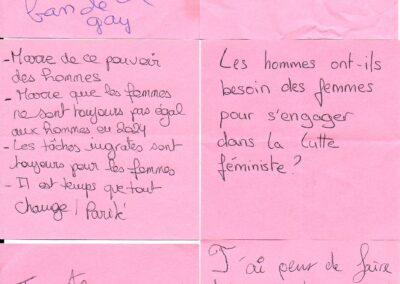 bande
gay
- Marre de ce pouvoir
des hommes
- Marre que les femmes
ne sont toujours pas égal
aux hommes en 2024
- Les tâches ingrates sont
toujours pour les femmes
- Il est temps que tout
change / Parité
Les hommes ont-ils
besoin des femmes
pour s'engager
dans la lutte
féministe ?
J'ai peur de faire